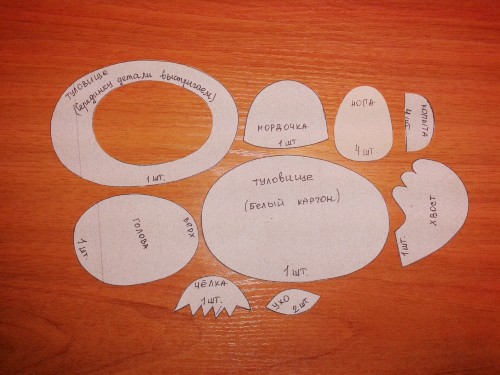 ТУЛОВИЩЕ
(Серединку детали выстригаем)
1 ШТ.
МОРДОЧКА
1 ШТ
НОГА
4 ШТ
КОПЫТА
4 ШТ
ТУЛОВИЩЕ
(БЕЛЫЙ КАРТОН)
1 ШТ.
ХВОСТ
1 ШТ.
ВЕРХ
ГОЛОВА
1 ШТ.
ЧЁЛКА
1 ШТ.
УХО
2 ШТ.